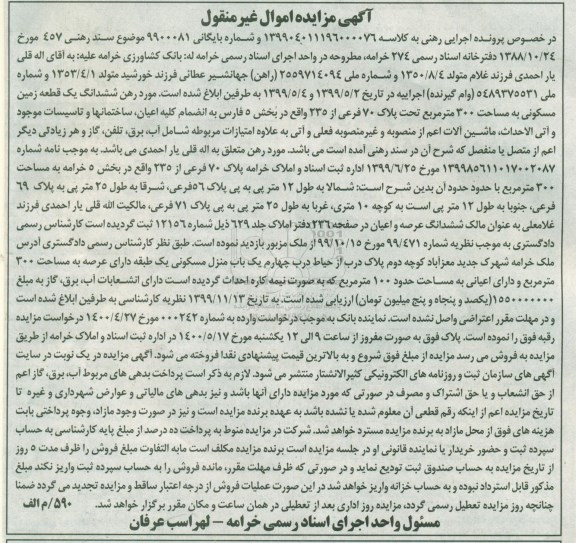 آگهی مزایده اموال غیرمنقول
در خصوص پرونده اجرایی رهنی به کلاسه ۱۳۹۹۰۴۰۱۱۱۹۶۰۰۰۰۷۶ و شماره بایگانی ۹۹۰۰۰۸۱ موضوع سند رهنی ۴۵۷ مورخ
۱۳۸۸/۱۰/۲۴ دفترخانه اسناد رسمی ۲۷۴ خرامه، مطروحه در واحد اجرای اسناد رسمی خرامه له: بانک کشاورزی خرامه علیه: به آقای اله قلی
یار احمدی فرزند غلام متولد ۱۳۵۰/۸/۴ و شماره ملی ۲۵۵۹۷۱۴۰۹۴ (راهن) جهانشیر عطائی فرزند خورشید متولد ۱۳۵۳/۴/۱ و شماره
ملی ۵۴۸۹۳۷۵۵۳۱ (وام گیرنده) اجراییه در تاریخ ۱۳۹۹/۵/۲ و ۱۳۹۹/۵/۴ به طرفین ابلاغ شده است. مورد رهن ششدانگ یک قطعه زمین
مسکونی به مساحت ۳۰۰ مترمربع تحت پلاک ۷۰ فرعی از ۲۳۵ واقع در بخش ۵ فارس به انضمام کلیه اعیان، ساختمانها و تاسیسات موجود
و آتی الاحداث، ماشین آلات اعم از منصوبه و غیرمنصوبه فعلی و آتی به علاوه امتیازات مربوطه شامل آب، برق، تلفن، گاز و هر زیادتی دیگر
اعم از متصل یا منفصل که شرح آن در سند رهنی آمده است می باشد. مورد رهن متعلق به اله قلی یار احمدی می باشد. به موجب نامه شماره
۱۳۹۹۸۵۶۱۱۰۱۷۰۰۲۰۸۷ مورخ ۱۳۹۹/۶/۲۵ اداره ثبت اسناد و املاک خرامه پلاک ۷۰ فرعی از ۲۳۵ واقع در بخش ۵ خرامه به مساحت
۳۰۰ مترمربع با حدود حدود آن بدین شرح است: شمالا به طول ۱۲ متر پی به پی پلاک ۵۶ فرعی، شرقا به طول ۲۵ متر پی به پی پلاک ۶۹
فرعی، جنوبا به طول ۱۲ متر پی است به کوچه ۱۰ متری، غربا به طول ۲۵ متر پی به پی پلاک ۷۱ فرعی، مالکیت الله قلی یار احمدی فرزند
غلامعلی به عنوان مالک ششدانگ عرصه و اعیان در صفحه ۲۳۶ دفتر املاک جلد ۶۲۹ ذیل شماره ۱۲۱۵۶ ثبت گردیده است کارشناس رسمی
دادگستری به موجب نظریه شماره ۹۹/۴۷۱ مورخ ۹۹/۱۰/۱۵ از ملک مزبور بازدید نموده است. طبق نظر کارشناس رسمی دادگستری آدرس
ملک خرامه شهرک جدید معزآباد کوچه دوم پلاک درب از حیاط درب چهارم یک باب منزل مسکونی یک طبقه دارای عرصه به مساحت ۳۰۰
مترمربع و دارای اعیانی به مساحت حدود ۱۰۰ مترمربع که به صورت نیمه کاره احداث گردیده است دارای انشعابات آب، برق، گاز به مبلغ
۱۵۵۰۰۰۰۰۰۰ (یکصد و پنجاه و پنج میلیون تومان) ارزیابی شده است. به تاریخ ۱۳۹۹/۱۱/۱۳ نظریه کارشناسی به طرفین ابلاغ شده است
و در مهلت مقرر اعتراضی واصل نشده است. نماینده بانک به موجب درخواست وارده به شماره ۰۰۰۲۴۲ مورخ ۱۴۰۰/۴/۲۷ درخواست مزایده
رقبه فوق را نموده است. پلاک فوق به صورت مفروز از ساعت ۹ الی ۱۲ یکشنبه مورخ ۱۴۰۰/۵/۱۷ در اداره ثبت اسناد و املاک خرامه از طریق
مزایده به فروش می رسد مزایده از مبلغ فوق شروع و به بالاترین قیمت پیشنهادی نقدا فروخته می شود. آگهی مزایده در یک نوبت در سایت
آگهی های سازمان ثبت و روزنامه های الکترونیکی کثیرالانتشار منتشر می شود. لازم به ذکر است پرداخت بدهی های مربوط آب، برق، گاز اعم
از حق انشعاب و یا حق اشتراک و مصرف در صورتی که مورد مزایده دارای آنها باشد و نیز بدهی های مالیاتی و عوارض شهرداری و غیره تا
تاریخ مزایده اعم از اینکه رقم قطعی آن معلوم شده یا نشده باشد به عهده برنده مزایده است و نیز در صورت وجود مازاد، وجوه پرداختی بابت
هزینه های فوق از محل مازاد به برنده مزایده مسترد خواهد شد. شرکت در مزایده منوط به پرداخت ده درصد از مبلغ پایه کارشناسی به حساب
سپرده ثبت و حضور خریدار یا نماینده قانونی او در جلسه مزایده است برنده مزایده مکلف است مابه التفاوت مبلغ فروش را ظرف مدت ۵ روز
از تاریخ مزایده به حساب صندوق ثبت تودیع نماید و در صورتی که ظرف مهلت مقرر، مانده فروش را به حساب سپرده ثبت واریز نکند مبلغ
مذکور قابل استرداد نبوده و به حساب خزانه واریز خواهد شد در این صورت عملیات فروش از درجه اعتبار ساقط و مزایده تجدید می گردد ضمنا
چنانچه روز مزایده تعطیل رسمی گردد، مزایده روز اداری بعد از تعطیلی در همان ساعت و مکان مقرر برگزار خواهد شد. ۵۹۰/م الف
مسئول واحد اجرای اسناد رسمی خرامه – لهراسب عرفان